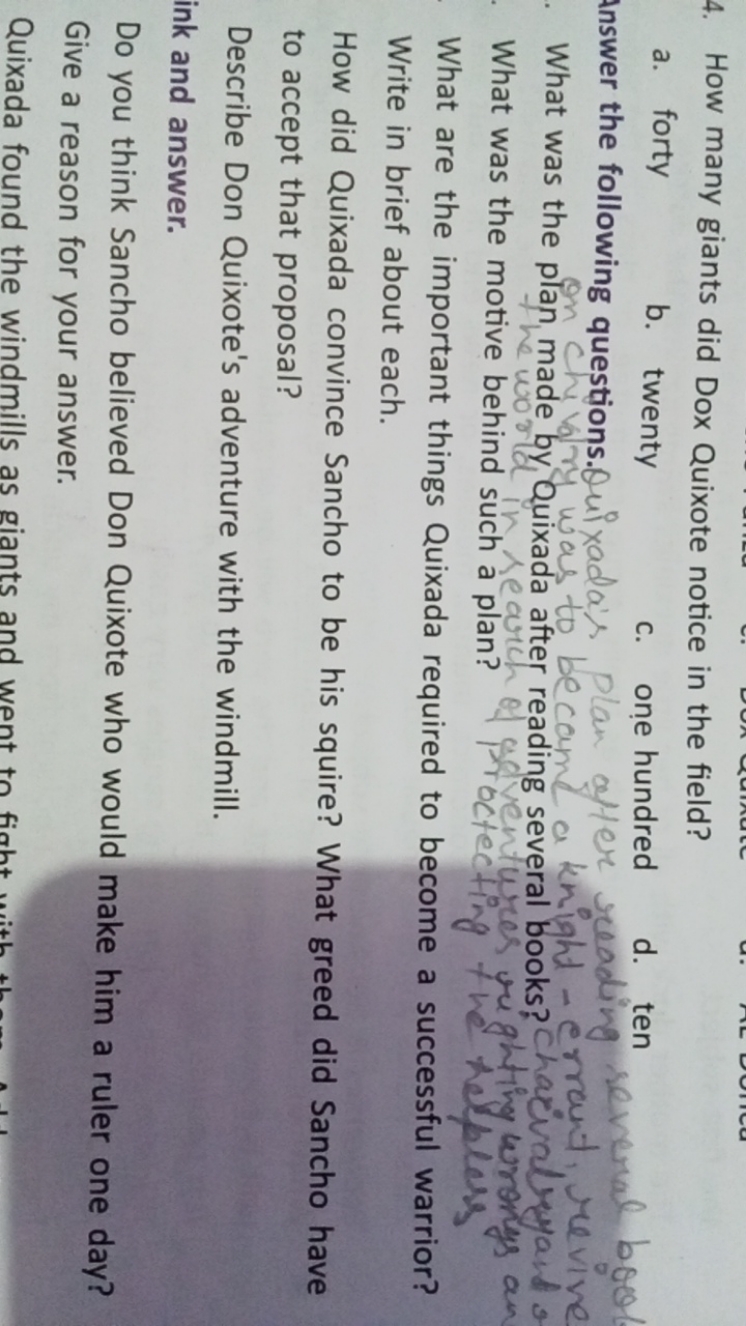 4. How many giants did Dox Quixote notice in the field?
a. forty b. twenty c. one hundred d. ten
Answer the following questions.
Quixada's plan after reading several book
on chivalry was to became a knight-errant, revive
What was the plan made by Quixada after reading several books?
the world in search of adventures righting wrongs an
What was the motive behind such a plan?
protecting the helpless
What are the important things Quixada required to become a successful warrior?
Write in brief about each.
How did Quixada convince Sancho to be his squire? What greed did Sancho have
to accept that proposal?
Describe Don Quixote's adventure with the windmill.
ink and answer.
Do you think Sancho believed Don Quixote who would make him a ruler one day?
Give a reason for your answer.
Quixada found the windmills as giants and went to fight with them